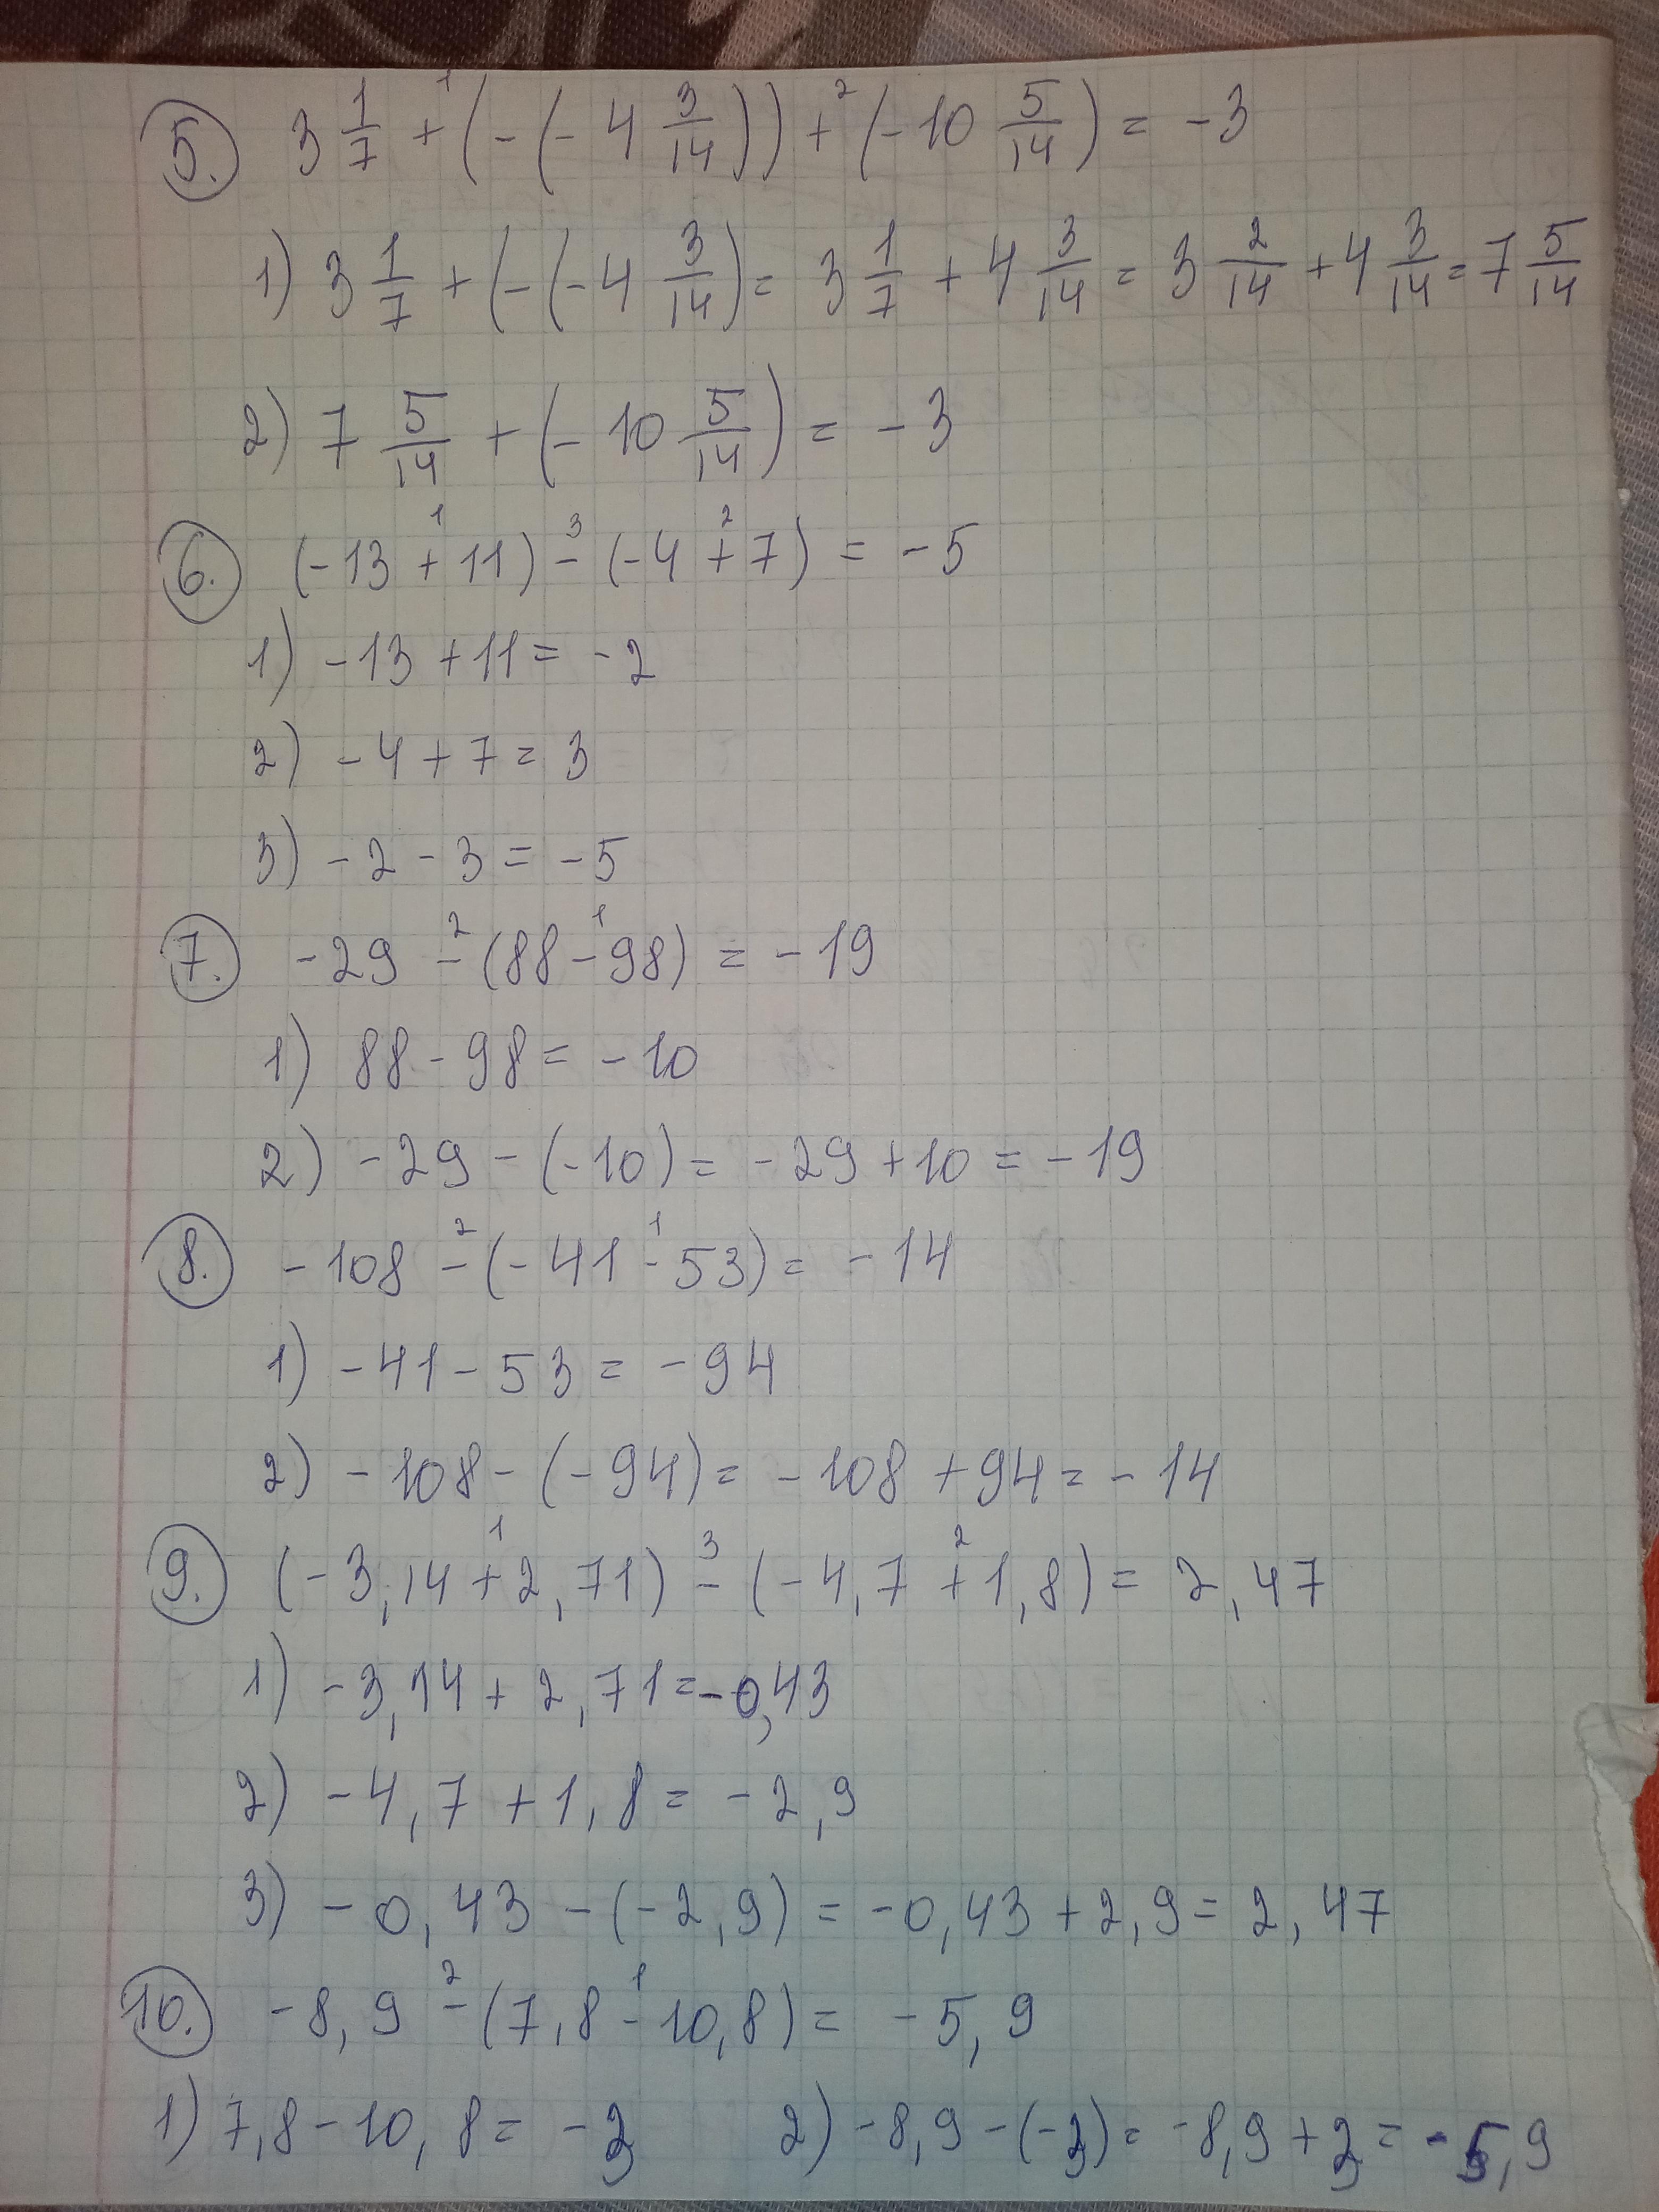 5. 3 1/7 + (-(-4 3/14)) + (-10 5/14) = -3
1) 3 1/7 + (-(-4 3/14) = 3 1/7 + 4 3/14 = 3 2/14 + 4 3/14 = 7 5/14
2) 7 5/14 + (-10 5/14) = -3
6. (-13 + 11) - (-4 + 7) = -5
1) -13 + 11 = -2
2) -4 + 7 = 3
3) -2 - 3 = -5
7. -29 - (88 - 98) = -19
1) 88 - 98 = -10
2) -29 - (-10) = -29 + 10 = -19
8. -108 - (-41 - 53) = -14
1) -41 - 53 = -94
2) -108 - (-94) = -108 + 94 = -14
9. (-3,14 + 2,71) - (-4,7 + 1,8) = 2,47
1) -3,14 + 2,71 = -0,43
2) -4,7 + 1,8 = -2,9
3) -0,43 - (-2,9) = -0,43 + 2,9 = 2,47
10. -8,9 - (7,8 - 10,8) = -5,9
1) 7,8 - 10,8 = -3 2) -8,9 - (-3) = -8,9 + 3 = -5,9